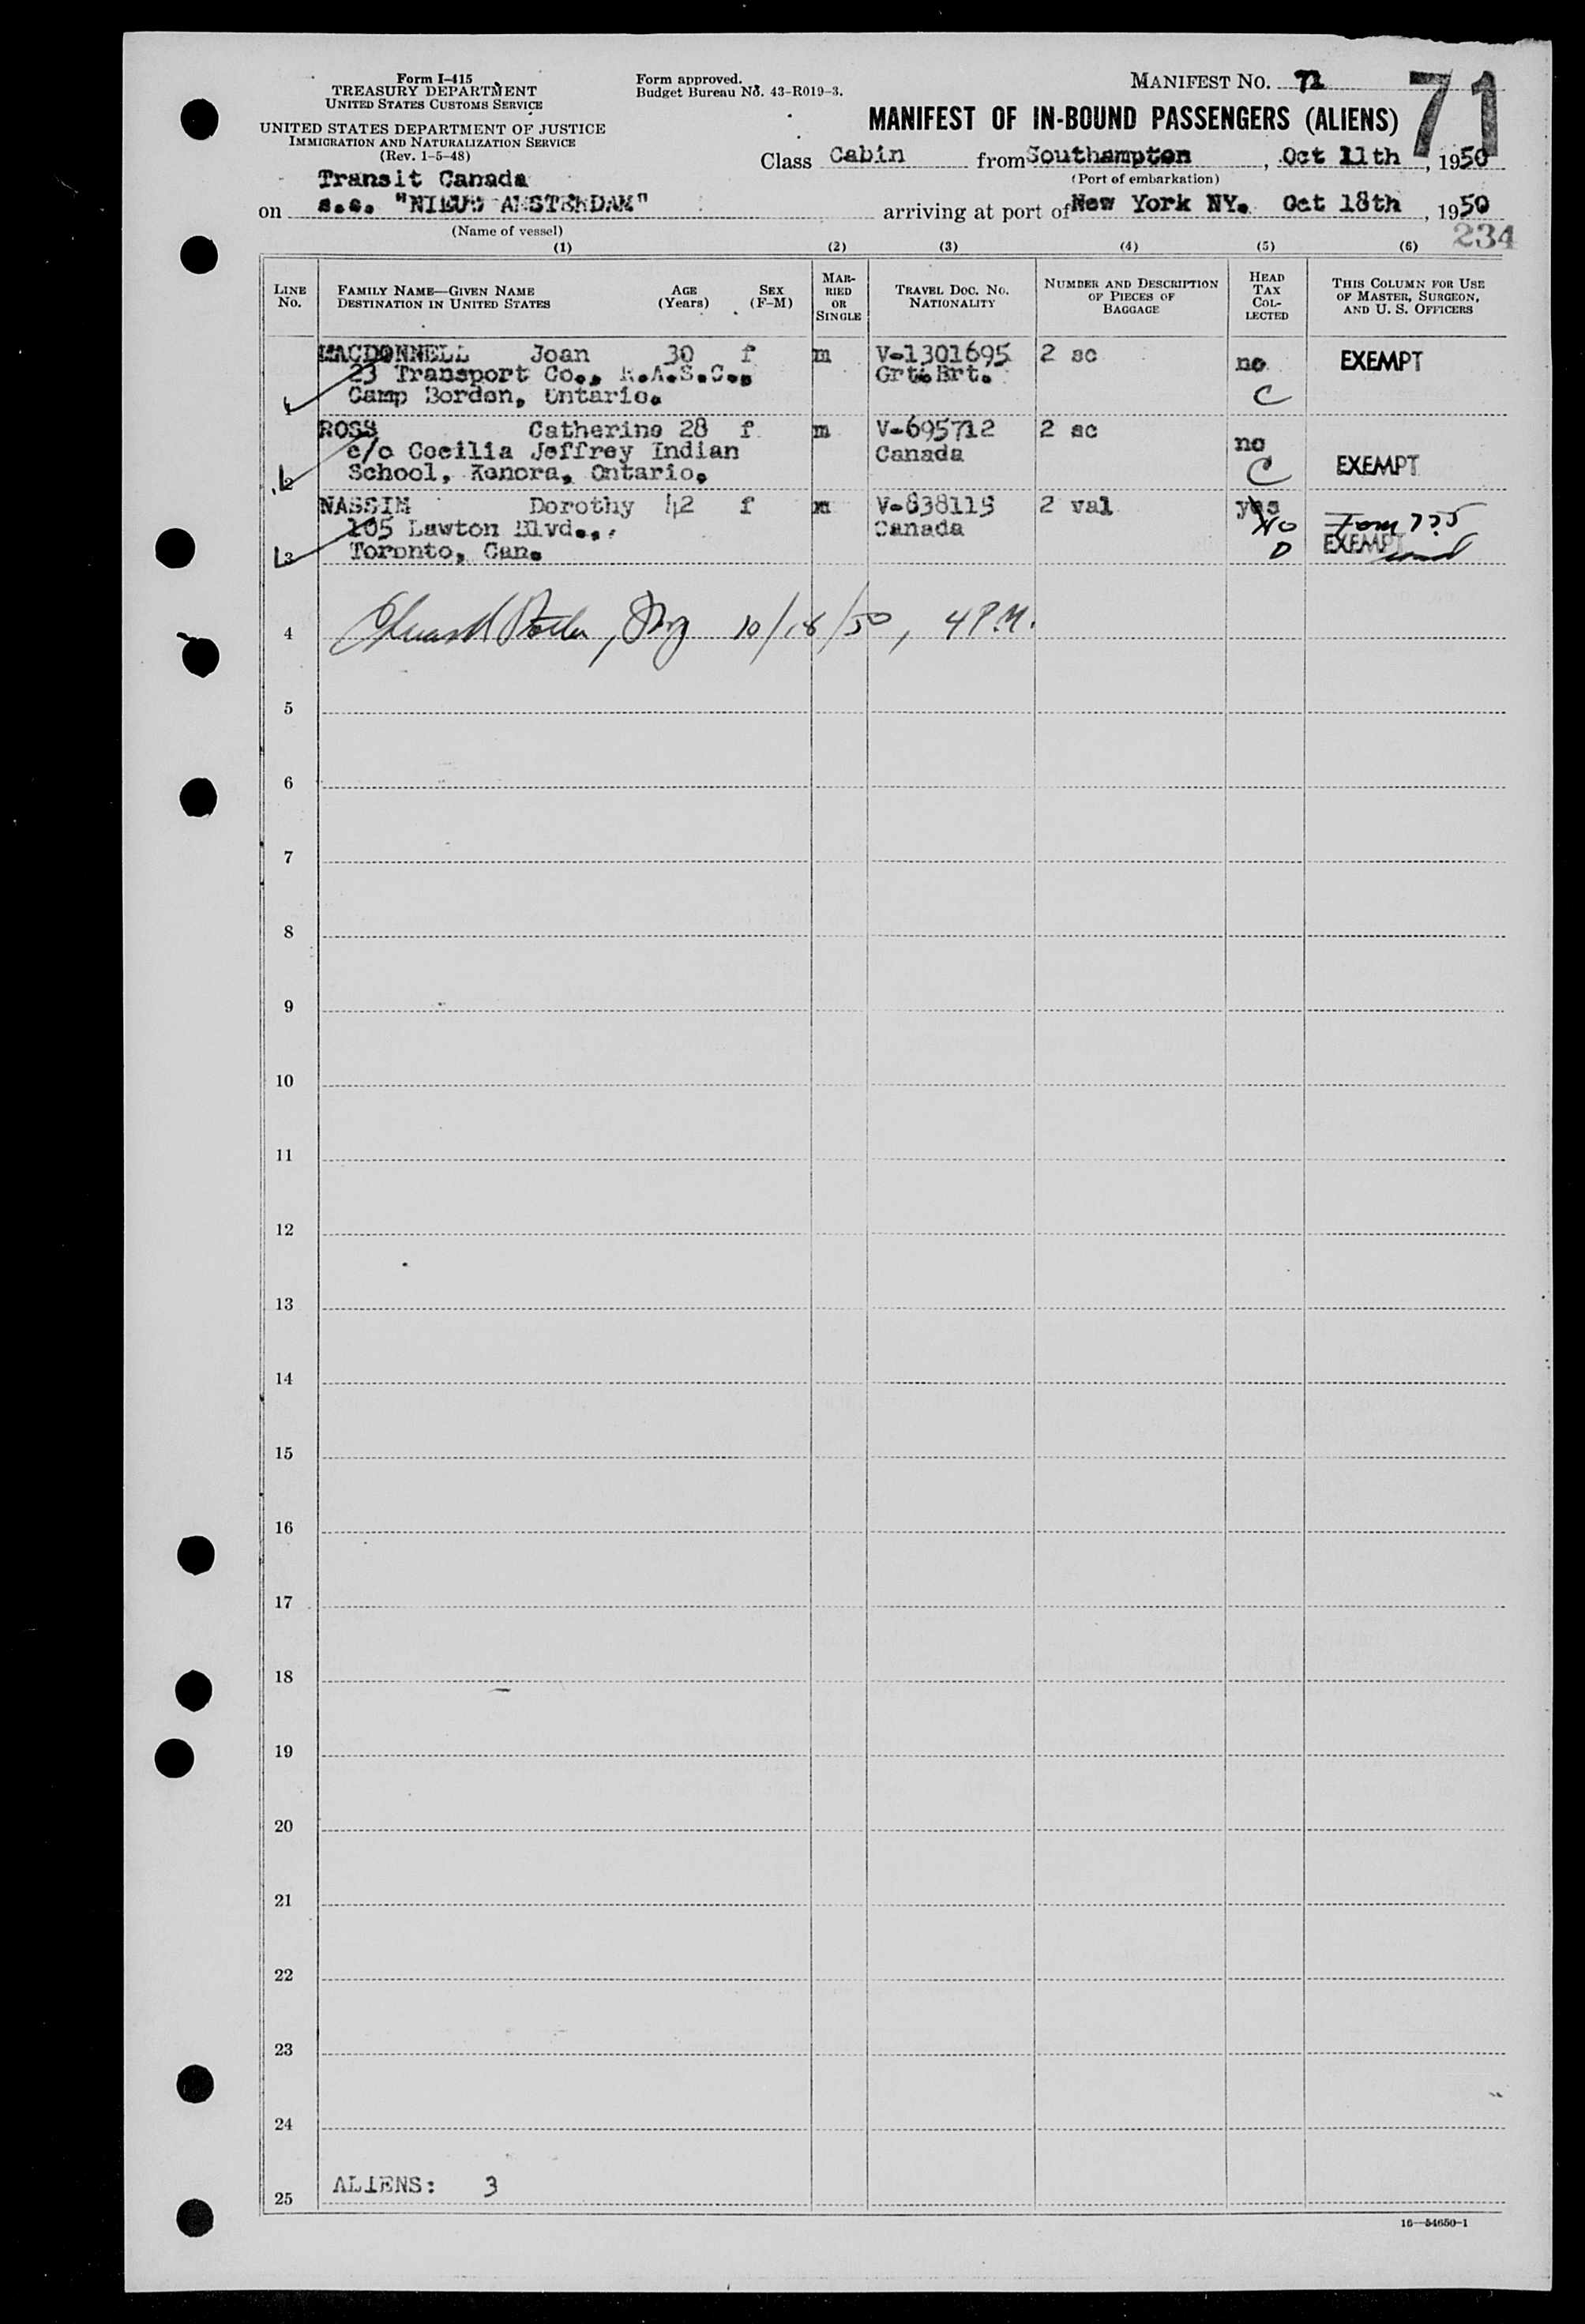 Form I-415
TREASURY DEPARTMENT
UNITED STATES CUSTOMS SERVICE
UNITED STATES DEPARTMENT OF JUSTICE
IMMIGRATION AND NATURALIZATION SERVICE
(Rev. 1-5-48)
Form approved.
Budget Bureau No. 43-R019-3.
MANIFEST NO. 72
71
MANIFEST OF IN-BOUND PASSENGERS (ALIENS)
Class Cabin from Southampton, Oct 11th, 1950
(Port of embarkation)
Transit Canada
on s.s. "NIEUW AMSTERDAM" arriving at port of New York NY. Oct 18th, 1950
(Name of vessel)
234
(1) (2) (3) (4) (5) (6)
LINE NO. FAMILY NAME—GIVEN NAME DESTINATION IN UNITED STATES AGE (Years) SEX (F-M) MARRIED OR SINGLE TRAVEL DOC. NO. NATIONALITY NUMBER AND DESCRIPTION OF PIECES OF BAGGAGE HEAD TAX COLLECTED THIS COLUMN FOR USE OF MASTER, SURGEON, AND U. S. OFFICERS
MACDONNELL Joan 30 f m V-1301695 2 sc no EXEMPT
23 Transport Co., R.A.S.C., Grt.Brt.
Camp Borden, Ontario. C
ROSS Catherine 28 f m V-695712 2 sc no
2 c/o Cecilia Jeffrey Indian Canada
School, Kenora, Ontario. C EXEMPT
NASSIM Dorothy 42 f m V-838115 2 val yes
105 Lawton Blvd., Canada No
3 Toronto, Can. D EXEMPT
4 10/18/50, 4 P.M.
5
6
7
8
9
10
11
12
13
14
15
16
17
18
19
20
21
22
23
24
25 ALIENS: 3
16—54650-1